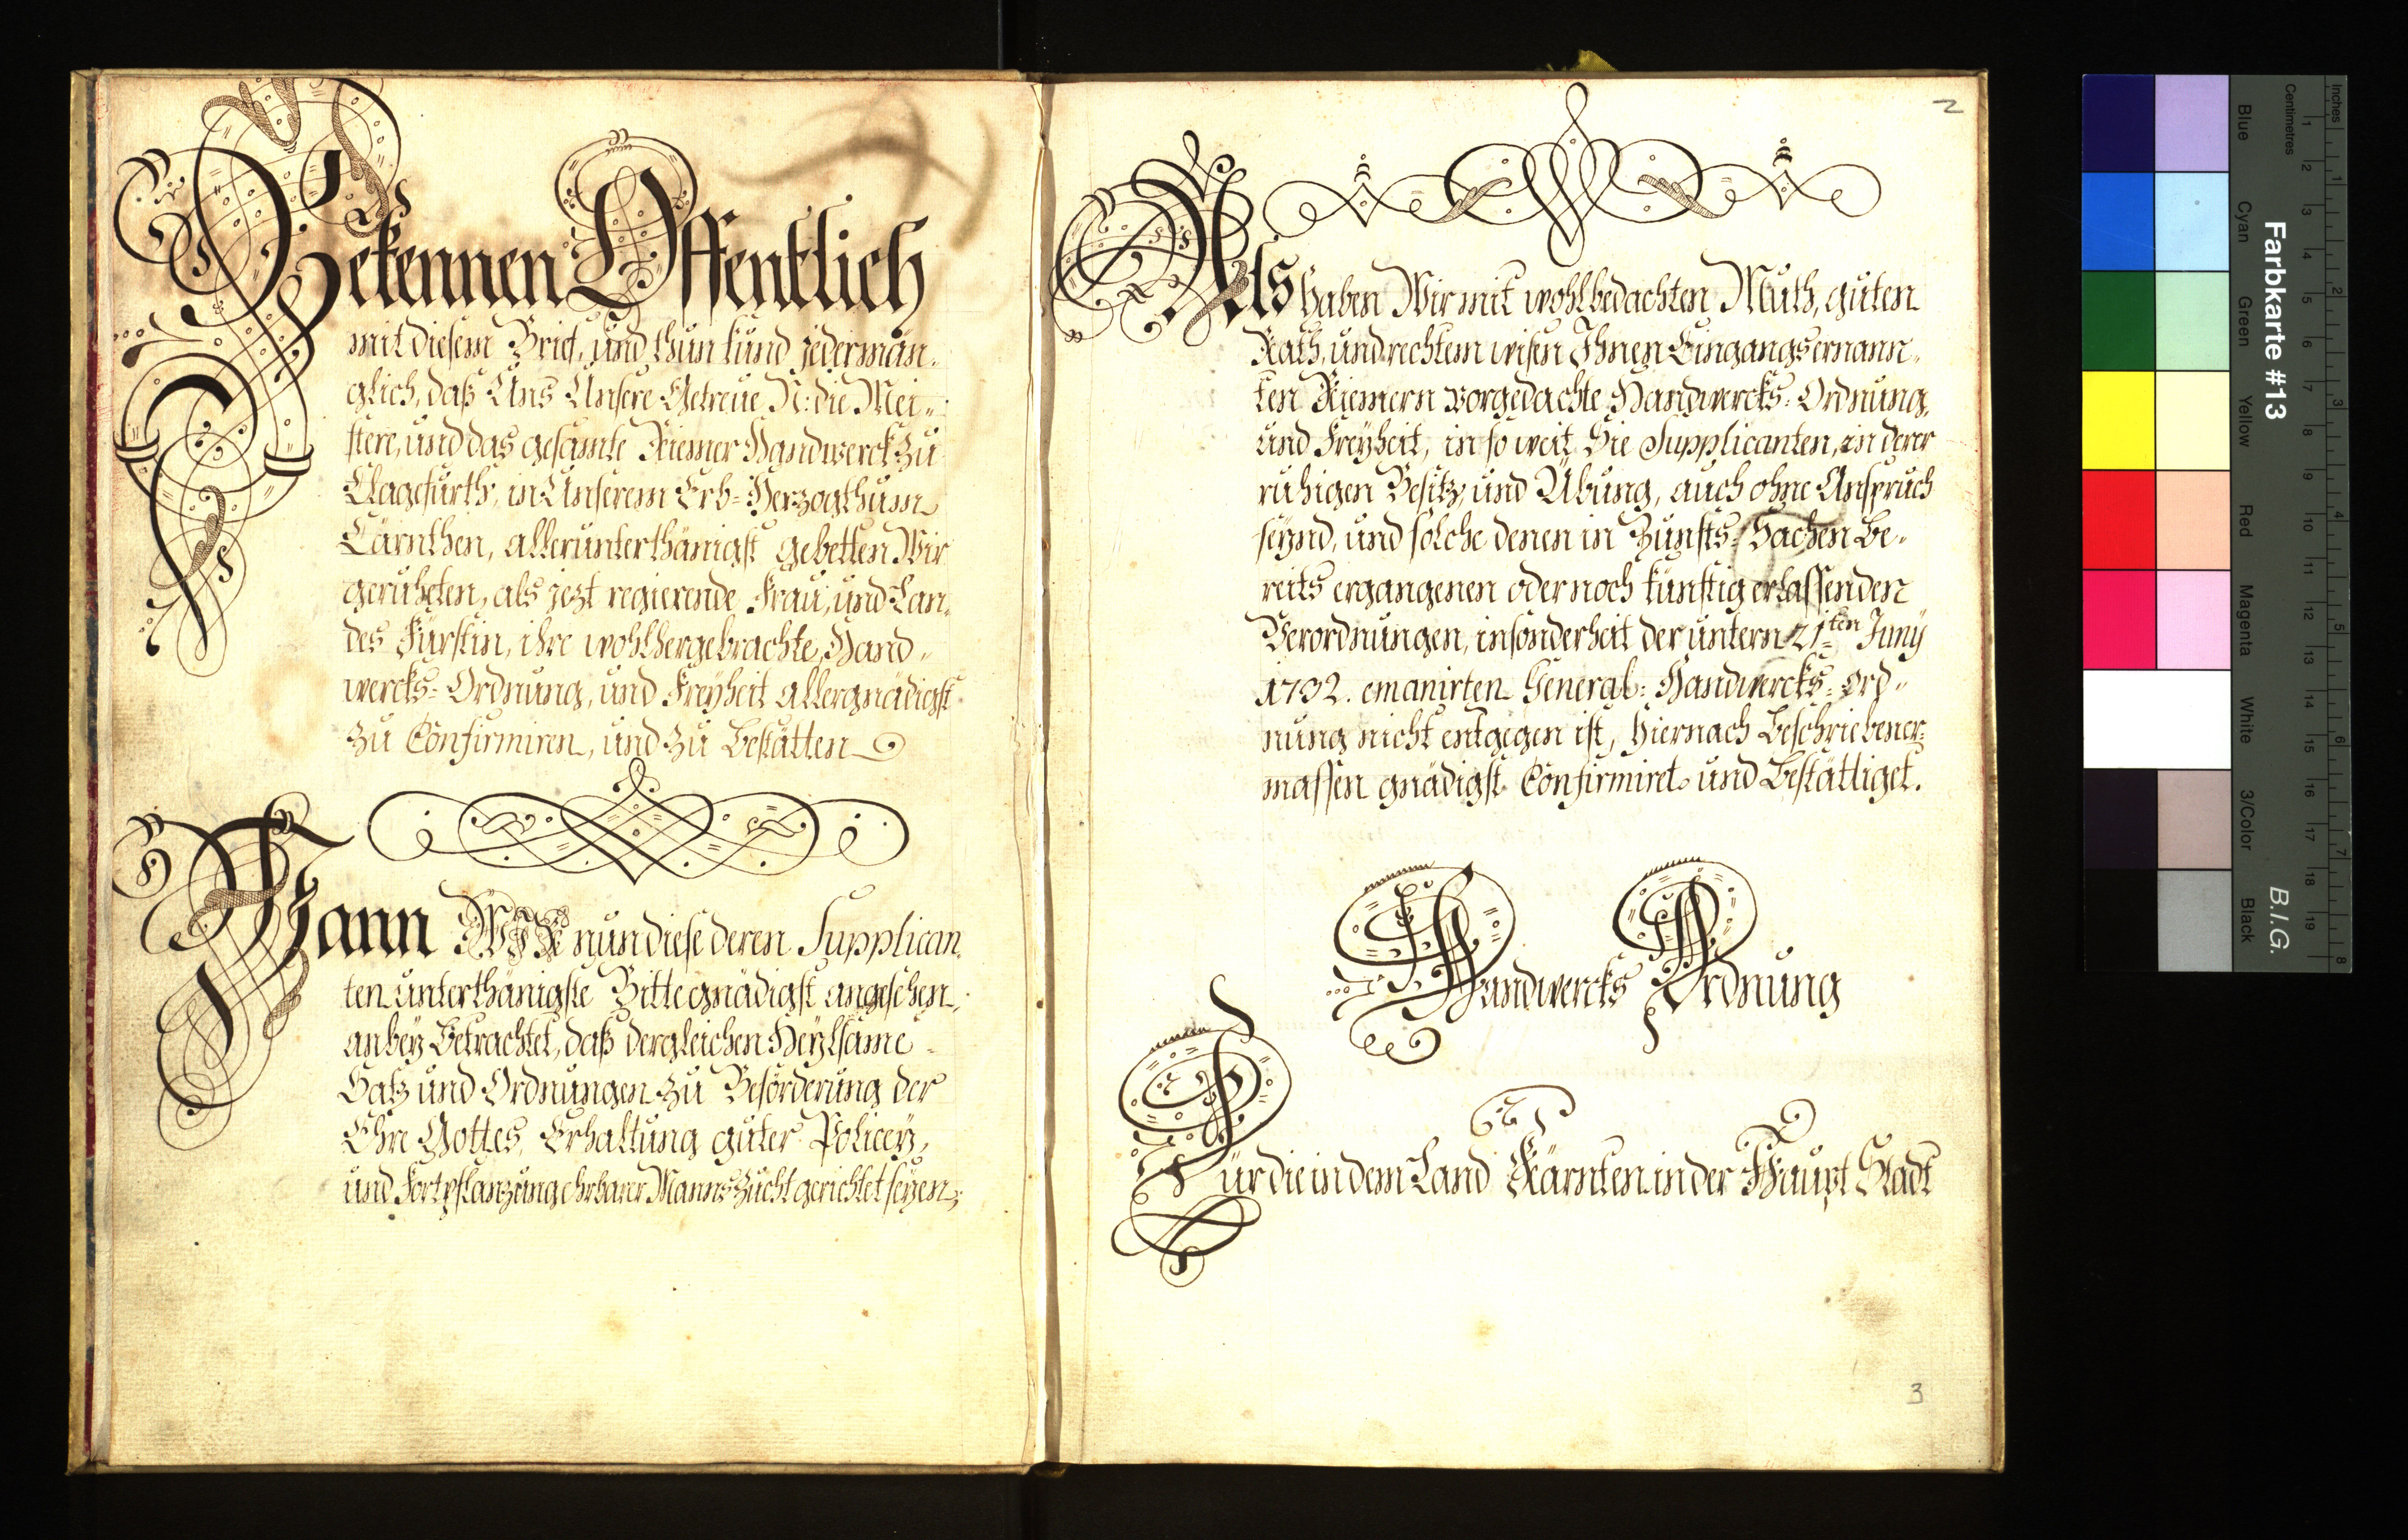 Bekennen Offentlich
mit diesem Brief, und thun kund jederman„
glich, daß Uns Unsere Getreue N: die Mei„
stere, und das gesamte Riemer Handwerck zu
Clagefurth, in Unserem Erb=Herzogthum
Cärnthen, allerunterthänigst gebetten Wir
geruheten, als jezt regierende Frau, und Lan„
des Fürstin, ihre wohlhergebrachte Hand„
wercks=Ordnung, und Freyheit allergnädigst
zu Confirmiren, und zu Bestätten
Wann Wir nun diese deren Supplican„
ten unterthänigste Bitte gnädigst angesehen,
anbey Betrachtet, daß dergleichen Heylsame
Satz und Ordnungen zu Beförderung der
Ehre Gottes, Erhaltung guter Policey,
und Fortpflanzung ehrbarer Manns Zucht gerichtet seyen;
2
Als haben Wir mit wohlbedachten Muth, guten
Rath, und rechtem wisen Ihnen Eingangsernann„
ten Riemern vorgedachte Handwercks=Ordnung,
und Freyheit, in so weit Sie Supplicanten, in derer
ruhigen Besitz, und Übung, auch ohne Anspruch
seynd, und solche denen in Zunfts=Sachen Be„
reits ergangenen oder noch künftig erlassenden
Verordnungen, insonderheit der untern 21ten Juny
1732. emanirten General=Handwercks=Ord„
nung nicht entgegen ist, hiernach Beschriebener=
massen gnädigst Confirmiret und Bestättiget.
Handwercks Ordnung
Für die in dem Land Kärnten in der Haupt Stadt
3
Inches
Centimetres
1 2 3 4 5 6 7 8 9 10 11 12 13 14 15 16 17 18 19
1 2 3 4 5 6 7 8
Farbkarte #13
B.I.G.
Blue
Cyan
Green
Yellow
Red
Magenta
White
3/Color
Black